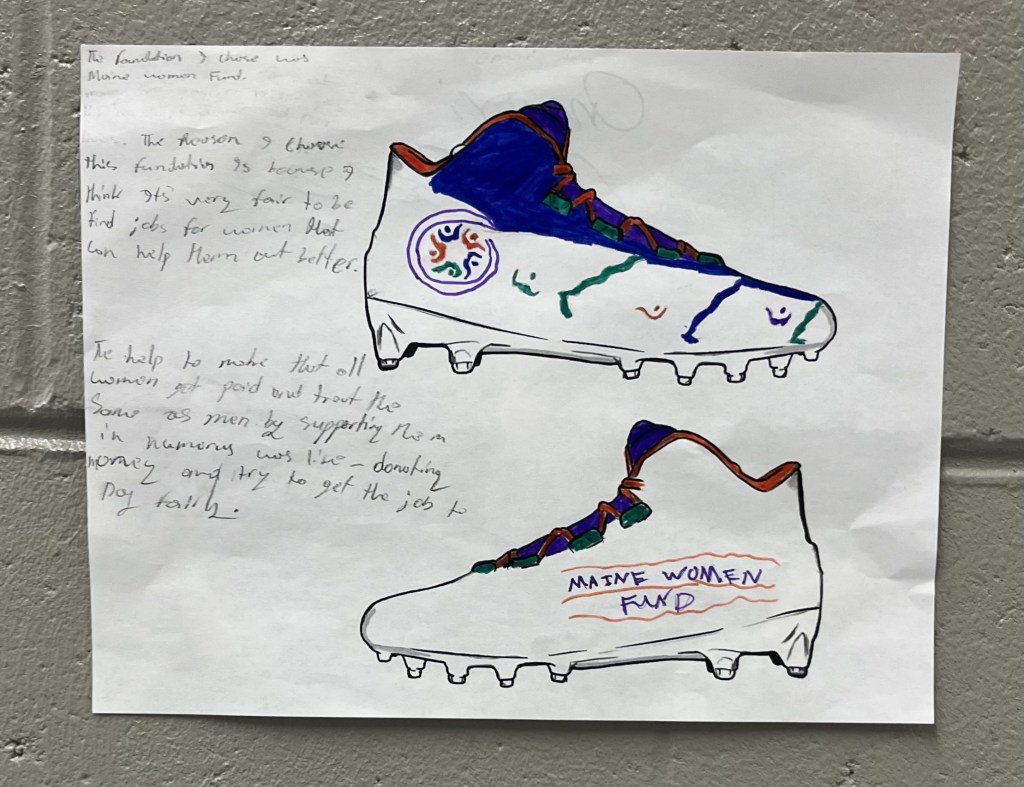 The foundation I chose was
Maine women Fund.
The Reason I choose
this fundation is because I
think it's very fair to be
find jobs for women that
can help them out better.
The help to make that all
women get paid and treat the
same as men by supporting them
in numerus was like - donating
money and try to get the job to
Pay fairly.
MAINE WOMEN
FUND